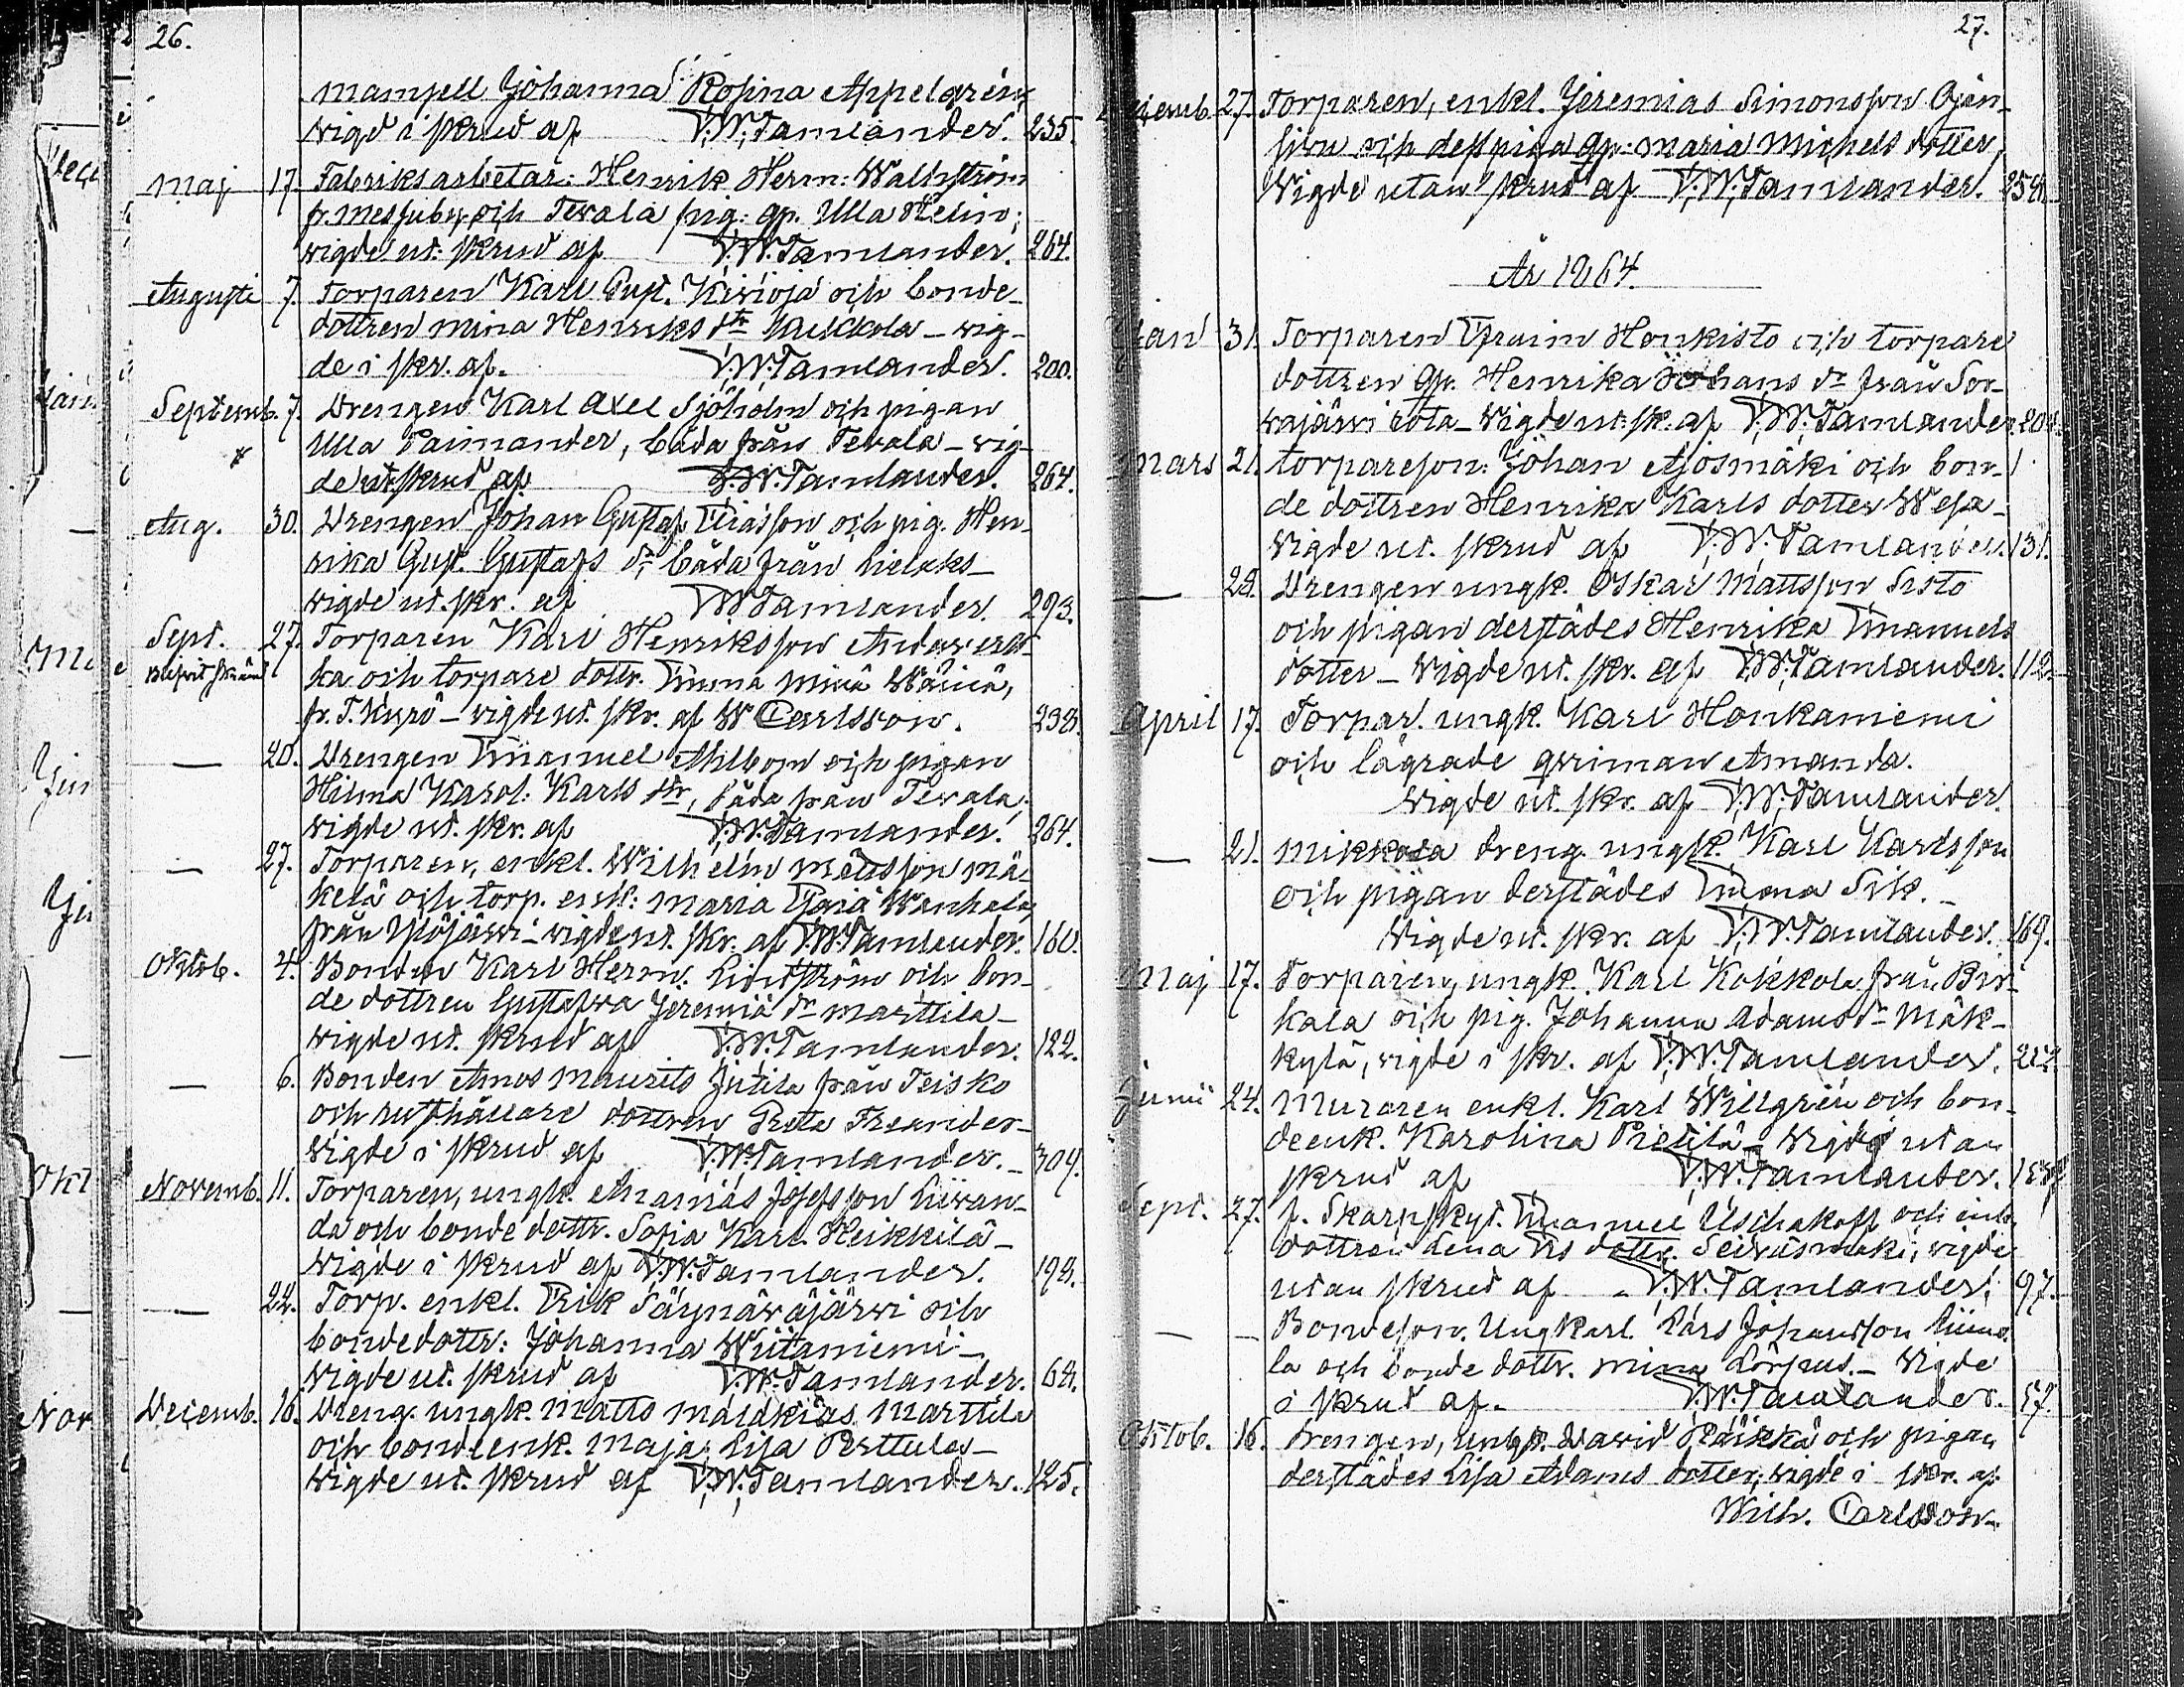 26.
Mamsell Johanna Rosina Appelgrén,
vigd i skrud af T.W. Tamlander. 235.
Maj 17. Fabriksarbetar: Henrik Herm: Wallström
fr. Messuby och Tevala pig: qp. Ulla Helin;
vigde ut. skrud af T.W. Tamlander. 264.
Augusti 7. Torparen Karl Gust. Kivioja och bonde-
dottren Mina Henriks dtr Kuickola - vig-
de i skr. af. T.W. Tamlander. 200.
Septemb. 7. Drengen Karl Axel Sjöholm och pigan
Ulla Paimander, båda från Tevala - vig-
de ut. skrud af T.W. Tamlander. 264.
Aug. 30. Drengen Johan Gustaf Eliasson och pig. Hen-
rika Gust. Gustafs dr båda från Lielaks -
vigde ut. skr. af T.W. Tamlander. 293.
Sept. 27. Torparen Karl Henriksson
ka och torpare dottr. Emma Mina Wäinä,
fr. T. Kyrö - vigde ut. skr. af W Carlsson. 238.
— 20. Drengen Emanuel Ahlbom och pigan
Hilma Karol: Karls dtr, båda från Tevala;
vigde ut. skr. af T.W. Tamlander. 264.
— 27. Torparen, enkl. Wilhelm Mattsson Mä-
kelä och torp. enk: Maria Wanhala,
från Ylöjärvi - vigde ut. skr. af T.W. Tamlander. 160.
Oktob. 4. Bonden Karl Herm. Lindström och bon-
de dottren Gustafva Jeremiä dr Marttila -
vigde ut. skrud af T.W. Tamlander. 122.
— 6. Bonden Amos Maurits Jutila från Teisko
och rusthållare dottren Greta Freander -
vigde i skrud af T.W. Tamlander. - 304.
Novemb. 11. Torparen, ungk. Ananias Josefsson Liivan-
da och bonde dottr. Sofia Karl. Heikkilä -
vigde i skrud af T.W. Tamlander. 198.
— 22. Torp. enkl. Erik Säynäväjärvi och
bondedottr: Johanna Wiitaniemi -
vigde ut. skrud af T.W. Tamlander. 68.
Decemb. 16. Dreng. ungk. Matts Malakias Marttila
och bondeenk. Maja Lisa Perttula -
vigde ut. skrud af T.W. Tamlander. 125.
27.
27. Torparen, enkl. Jeremias Simonsson Ojan-
sivu och dess piga qp: Maria Michels dotter,
Vigde utan skrud af T.W. Tamlander. 258.
År 1864.
Jan 31. Torparen Efraim Honkisto och torpare
dottren qp. Henrika Johans dr från Sor-
vajärvi rota - Vigde ut. sk. af T.W. Tamlander. 204.
Mars 21. torpareson: Johan Ajosmäki och bon-
de dottren Henrika Karls dotter Wesa -
vigde ut. skrud af T.W. Tamlander. 131.
— 28. Drengen ungk. Oskar Mattsson Sisto
och pigan derstädes Henrika Emanuels
dotter - vigde ut. skr. af T.W. Tamlander. 112.
April 17. Torpar. ungk. Karl Honkaniemi
och lägrade qvinnan Amanda.
vigde ut. skr. af T.W. Tamlander.
— 21. Mikkola dreng ungk. Karl Karlsson
och pigan derstädes Emma Sik. -
Vigde ut. skr. af T.W. Tamlander. 169.
Maj 17. Torparen, ungk. Karl Kokkola från Bir-
kala och pig. Johanna Adams dr Mäk-
kylä, vigde i skr. af T.W. Tamlander.
Junii 24. Muraren enkl. Karl Willgrén och bon-
deenk. Karolina Pietilä - vigde utan
skrud af T.W. Tamlander.
Sept. 27. f. Skarpskyt. Emanuel Uschakoff och
dottren Lena dotter Seiväsmäki, vigde
utan skrud af - T.W. Tamlander; 97.
— — Bondeson. Ungkarl. Lars Johansson
la och bonde dottr. Mina Lörpus. - Vigde
i skrud af. T.W. Tamlander. 57.
Oktob. 16. Drengen, ungk. David Räikkä och pigan
derstädes Lisa Adams dotter, vigde i skr. af
Wilh. Carlsson.